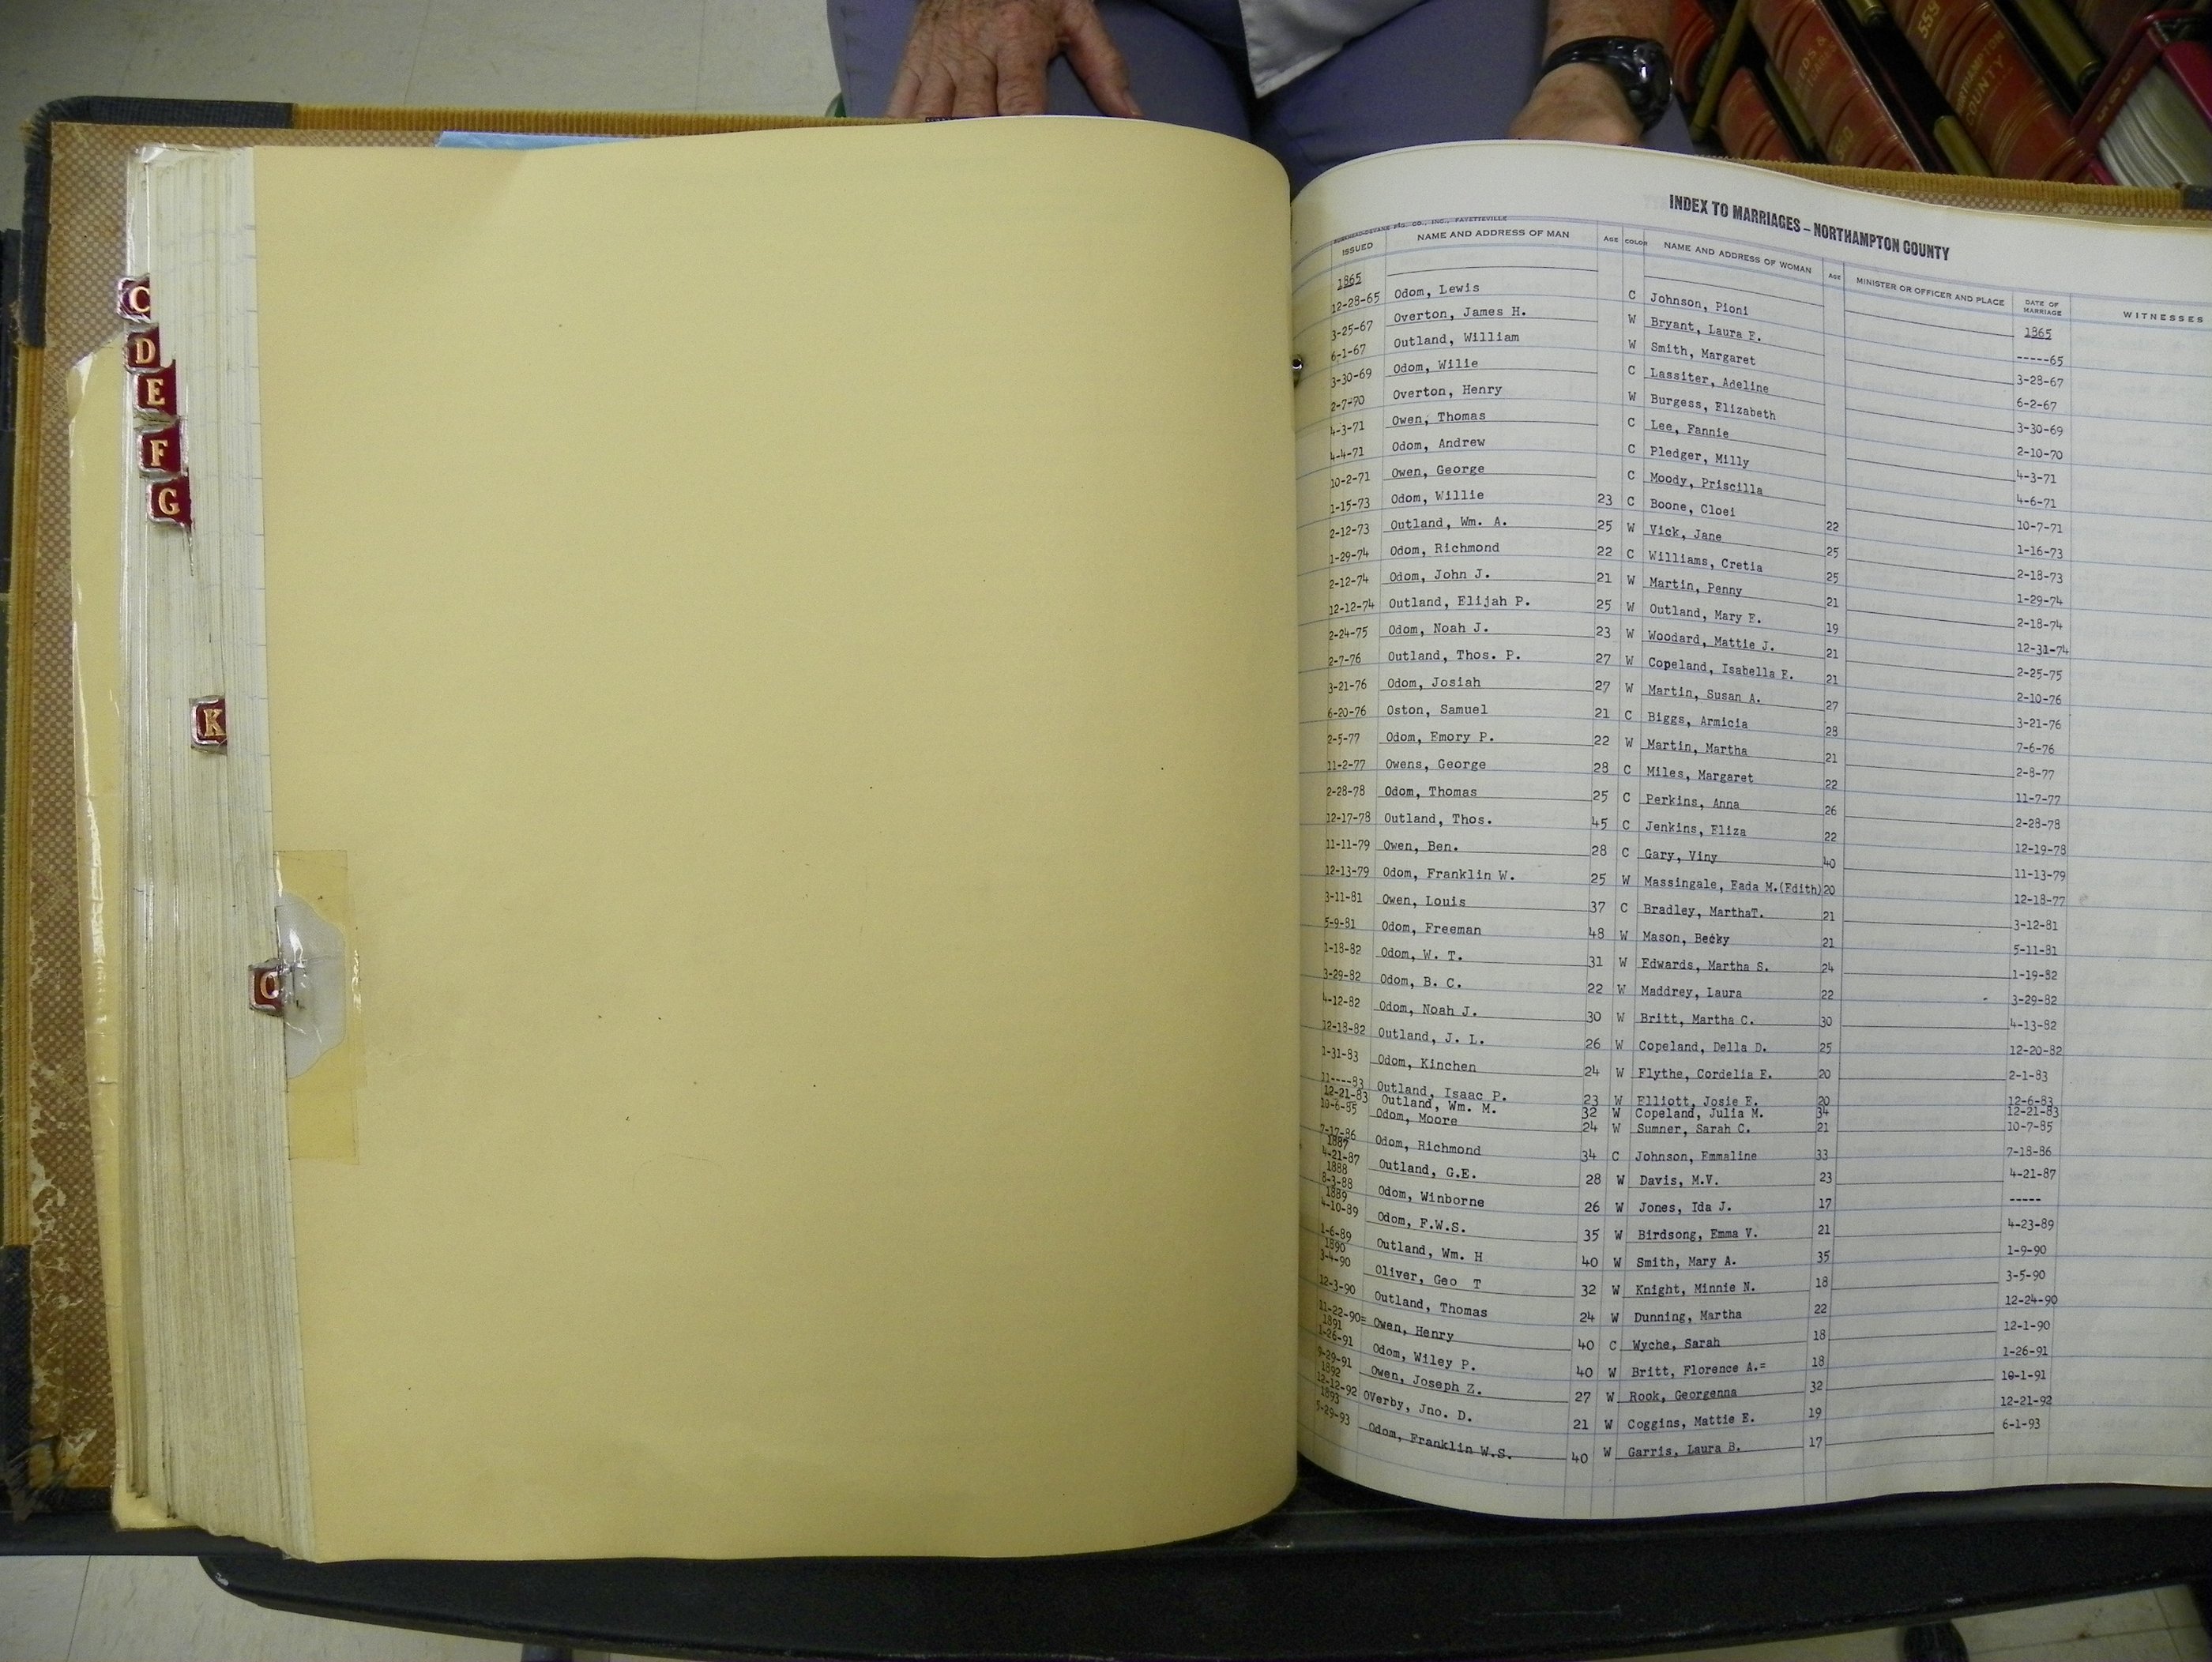 559
NORTHAMPTON
COUNTY
C
D
E
F
G
K
O
INDEX TO MARRIAGES – NORTHAMPTON COUNTY
ISSUED NAME AND ADDRESS OF MAN AGE COLOR NAME AND ADDRESS OF WOMAN AGE MINISTER OR OFFICER AND PLACE DATE OF MARRIAGE WITNESSES
1865 1865
12-28-65 Odom, Lewis C Johnson, Pioni -----65
3-25-67 Overton, James H. W Bryant, Laura E. 3-28-67
6-1-67 Outland, William W Smith, Margaret 6-2-67
3-30-69 Odom, Wilie C Lassiter, Adeline 3-30-69
2-7-70 Overton, Henry W Burgess, Elizabeth 2-10-70
4-3-71 Owen, Thomas C Lee, Fannie 4-3-71
4-4-71 Odom, Andrew C Pledger, Milly 4-6-71
10-2-71 Owen, George C Moody, Priscilla 10-7-71
1-15-73 Odom, Willie 23 C Boone, Cloei 22 1-16-73
2-12-73 Outland, Wm. A. 25 W Vick, Jane 25 2-18-73
1-29-74 Odom, Richmond 22 C Williams, Cretia 25 1-29-74
2-12-74 Odom, John J. 21 W Martin, Penny 21 2-18-74
12-12-74 Outland, Elijah P. 25 W Outland, Mary E. 19 12-31-74
2-24-75 Odom, Noah J. 23 W Woodard, Mattie J. 21 2-25-75
2-7-76 Outland, Thos. P. 27 W Copeland, Isabella E. 21 2-10-76
3-21-76 Odom, Josiah 27 W Martin, Susan A. 27 3-21-76
6-20-76 Oston, Samuel 21 C Biggs, Armicia 28 7-6-76
2-5-77 Odom, Emory P. 22 W Martin, Martha 21 2-8-77
11-2-77 Owens, George 28 C Miles, Margaret 22 11-7-77
2-28-78 Odom, Thomas 25 C Perkins, Anna 26 2-28-78
12-17-78 Outland, Thos. 45 C Jenkins, Eliza 22 12-19-78
11-11-79 Owen, Ben. 28 C Gary, Viny 40 11-13-79
12-13-79 Odom, Franklin W. 25 W Massingale, Eada M.(Edith) 20 12-18-77
3-11-81 Owen, Louis 37 C Bradley, MarthaT. 21 3-12-81
5-9-81 Odom, Freeman 48 W Mason, Becky 21 5-11-81
1-18-82 Odom, W. T. 31 W Edwards, Martha S. 24 1-19-82
3-29-82 Odom, B. C. 22 W Maddrey, Laura 22 3-29-82
4-12-82 Odom, Noah J. 30 W Britt, Martha C. 30 4-13-82
12-18-82 Outland, J. L. 26 W Copeland, Della D. 25 12-20-82
1-31-83 Odom, Kinchen 24 W Flythe, Cordelia E. 20 2-1-83
11----83 Outland, Isaac P. 23 W Elliott, Josie E. 20 12-6-83
12-21-83 Outland, Wm. M. 32 W Copeland, Julia M. 34 12-21-83
10-6-85 Odom, Moore 24 W Sumner, Sarah C. 21 10-7-85
7-17-86 Odom, Richmond 34 C Johnson, Emmaline 33 7-18-86
1887
4-21-87 Outland, G.E. 28 W Davis, M.V. 23 4-21-87
1888
8-3-88 Odom, Winborne 26 W Jones, Ida J. 17 -----
1889
4-10-89 Odom, F.W.S. 35 W Birdsong, Emma V. 21 4-23-89
1-6-89 Outland, Wm. H 40 W Smith, Mary A. 35 1-9-90
1890
3-4-90 Oliver, Geo T 32 W Knight, Minnie N. 18 3-5-90
12-3-90 Outland, Thomas 24 W Dunning, Martha 22 12-24-90
11-22-90= Owen, Henry 40 C Wyche, Sarah 18 12-1-90
1891
1-26-91 Odom, Wiley P. 40 W Britt, Florence A.= 18 1-26-91
9-29-91 Owen, Joseph Z. 27 W Rook, Georgenna 32 10-1-91
1892
12-12-92 OVerby, Jno. D. 21 W Coggins, Mattie E. 19 12-21-92
1893
5-29-93 Odom, Franklin W.S. 40 W Garris, Laura B. 17 6-1-93